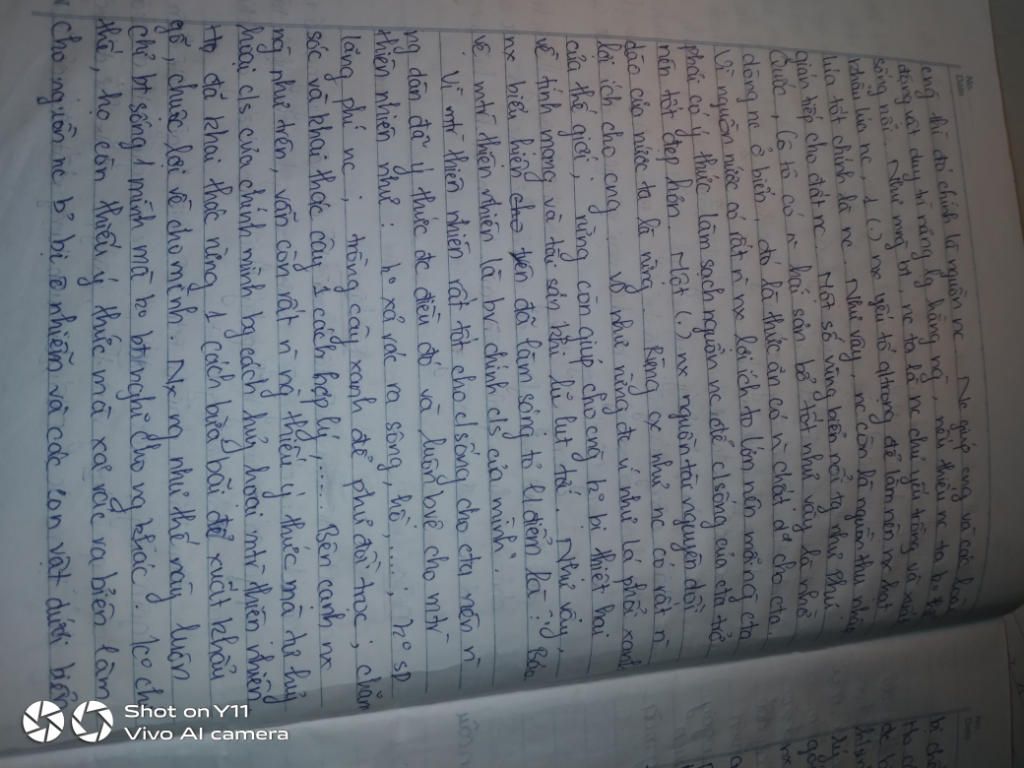 No.
Date
cng thì đó chính là nguồn nc. Nc giúp cng và các loài
động vật duy trì năng lg hằng ng, nếu thiếu nc ta ko thể
sống nổi. Như mng bt nc ta là nc chủ yếu trồng và xuất
khẩu lúa nc, 1 (.) nx yếu tố qtrọng để làm nên nx hạt
lúa tốt chính là nc. Như vậy, nc còn là nguồn thu nhập
gián tiếp cho đất nc. Một số vùng biển nổi tg như Phú
Quốc, Cô tô có n hải sản bổ tốt như vậy là nhờ
dòng nc ở biển, đó là thức ăn có n chất d² cho cta.
Vì nguồn nước có rất n nx lợi ích to lớn nên mỗi ng cta
phải có ý thức làm sạch nguồn nc để c/sống của cta trở
nên tốt đẹp hơn. Một (.) nx nguồn tài nguyên dồi
dào của nước ta là rừng. Rừng cx như nc có rất n
lợi ích cho cng. Ví như rừng đc ví như lá phổi xanh
của thế giới; rừng còn giúp cho cng ko bị thiệt hại
về tính mạng và tài sản khi lũ lụt tới. Như vậy,
nx biểu hiện trên đã làm sáng tỏ l.điểm là: "Bảo
vệ mtr thiên nhiên là bv chính c/s của mình".
Vì mtr thiên nhiên rất tốt cho c/sống cho cta nên n
ng dân đã ý thức đc điều đó và luôn bvệ cho mtr
thiên nhiên như: ko xả rác ra sông, hồ,....; ko sD
lãng phí nc; trồng cây xanh để phủ đồi trọc; chăm
sóc và khai thác cây 1 cách hợp lý;.... Bên cạnh nx
ng như trên, vẫn còn rất n ng thiếu ý thức mà tự huỷ
hoại c/s của chính mình bg cách huỷ hoại mtr thiên nhiên.
Họ đã khai thác rừng 1 cách bừa bãi để xuất khẩu
gỗ, chuộc lợi về cho mình. Nx ng như thế này luôn
chỉ bt sống 1 mình mà ko bt nghĩ cho ng khác. Ko chỉ
thế, họ còn thiếu ý thức mà xả rác ra biển làm
cho nguồn nc bị ô nhiễm và các con vật dưới biển
Shot on Y11
Vivo AI camera